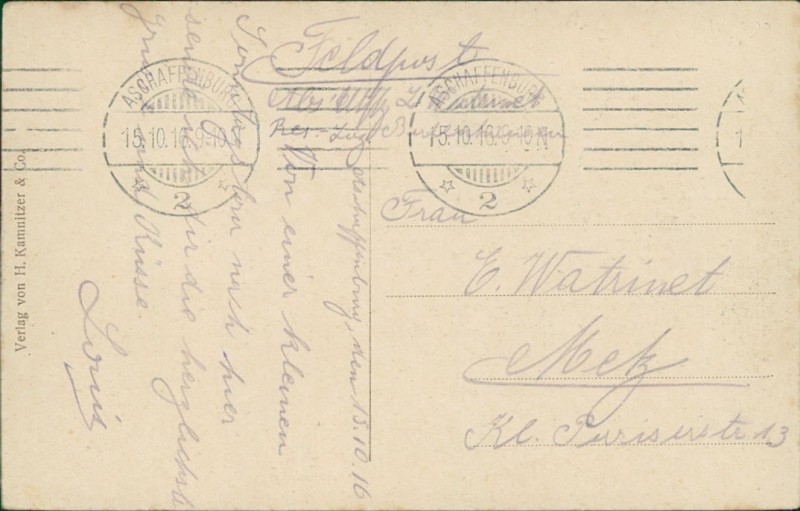 Feldpost
Abs. Uffz. L. Watrinet
Res.-Laz.
ASCHAFFENBURG
15.10.16.9-10 N
2
ASCHAFFENBURG
15.10.16.9-10 N
2
Aschaffenburg, den 15.10.16
Von einer kleinen
Sonntagstour nach hier
sende ich dir die herzlichst
Grüße und Küsse
Louis
Frau
E. Watrinet
Metz
Kl. Pariserstr. 13
Verlag von H. Kamnitzer & Co.